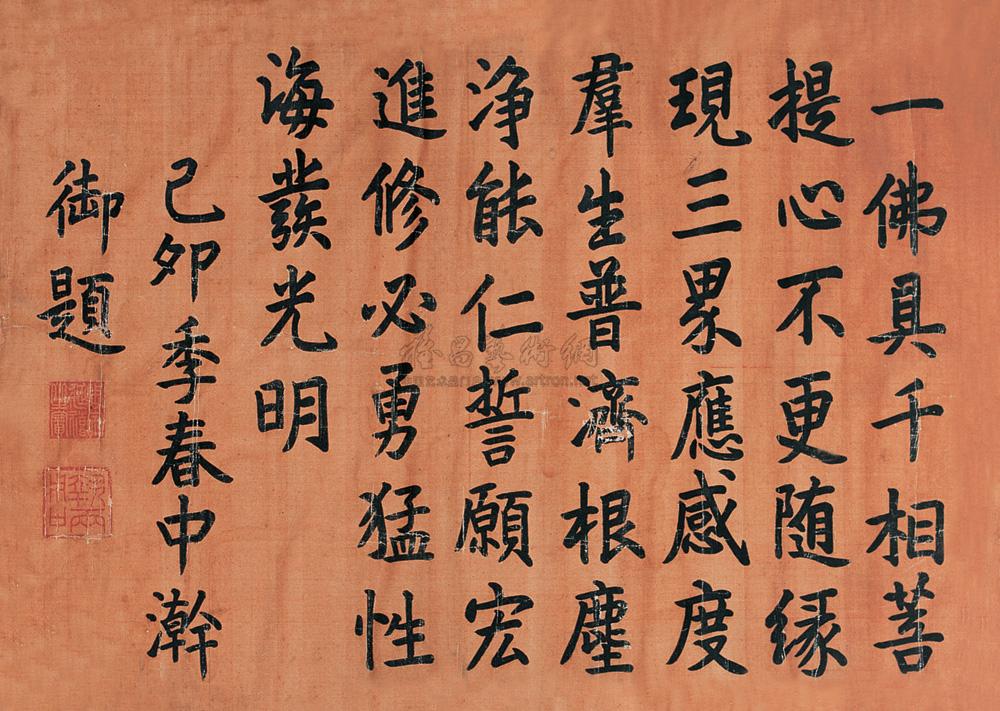 一佛具千相菩
提心不更随缘
現三界應感度
羣生普濟根塵
净能仁誓願宏
進修必勇猛性
海發光明
己夘季春中澣
御題
www.artron.net